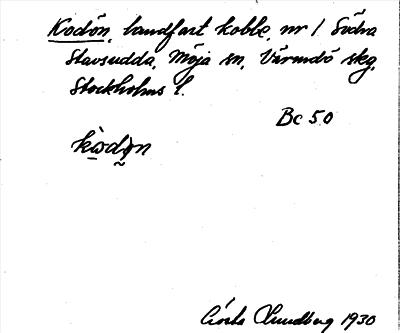 Kodön, landfast kobbe, nr 1 Södra
Stavsudda, Möja sn, Värmdö skg,
Stockholms l.
Bc 50
kòdǫn
Gösta Lundberg 1930